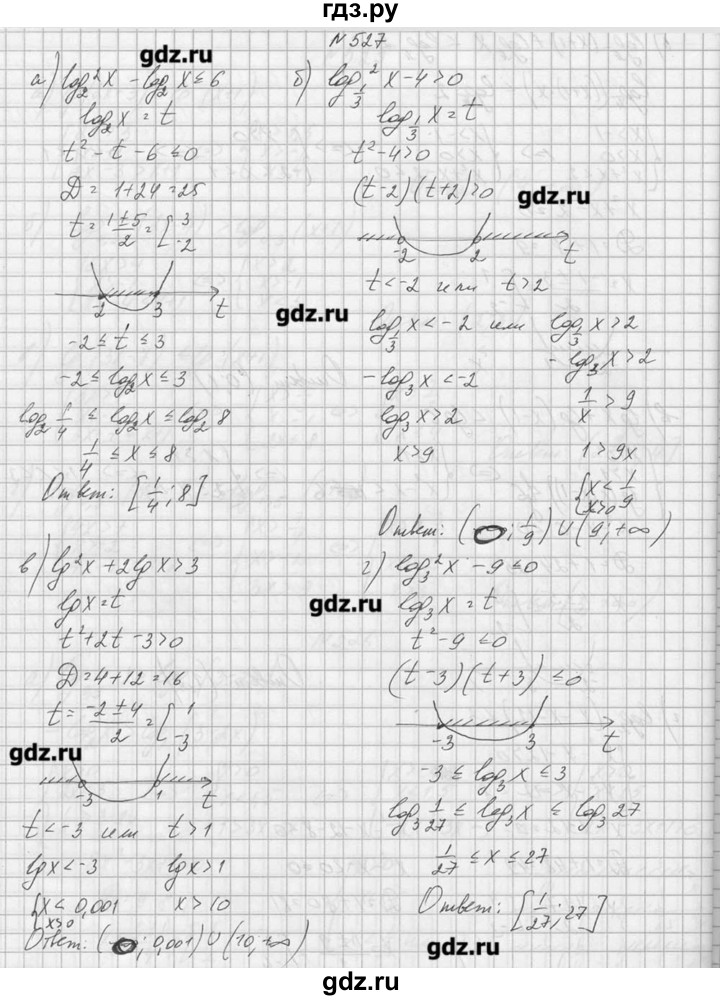 гдз.ру
N 527
gdz.ru
а) log₂²x - log₂x ≤ 6
log₂x = t
t² - t - 6 ≤ 0
D = 1+24 = 25
t = (1±5)/2 = [3; -2
-2 3 t
-2 ≤ t ≤ 3
-2 ≤ log₂x ≤ 3
log₂ 1/4 ≤ log₂x ≤ log₂ 8
1/4 ≤ x ≤ 8
Ответ: [1/4; 8]
б) log²_{1/3} x - 4 > 0
log_{1/3} x = t
t² - 4 > 0
(t-2)(t+2) > 0
gdz.ru
-2 2 t
t < -2 или t > 2
gdz.ru
log_{1/3} x < -2 или log_{1/3} x > 2
-log₃x < -2 - log₃x > 2
log₃x > 2 1/x > 9
x > 9 1 > 9x
{x < 1/9
x > 0
Ответ: (0; 1/9) ∪ (9; +∞)
в) lg²x + 2lgx > 3
lgx = t
t² + 2t - 3 > 0
D = 4+12 = 16
t = (-2±4)/2 = [1; -3
gdz.ru
-3 1 t
t < -3 или t > 1
lgx < -3 lgx > 1
{x < 0,001 x > 10
x > 0
Ответ: (0; 0,001) ∪ (10, +∞)
г) log₃²x - 9 ≤ 0
gdz.ru
log₃x = t
t² - 9 ≤ 0
(t-3)(t+3) ≤ 0
-3 3 t
-3 ≤ log₃x ≤ 3
log₃ 1/27 ≤ log₃x ≤ log₃ 27
1/27 ≤ x ≤ 27
Ответ: [1/27; 27]
gdz.ru
gdz.ru